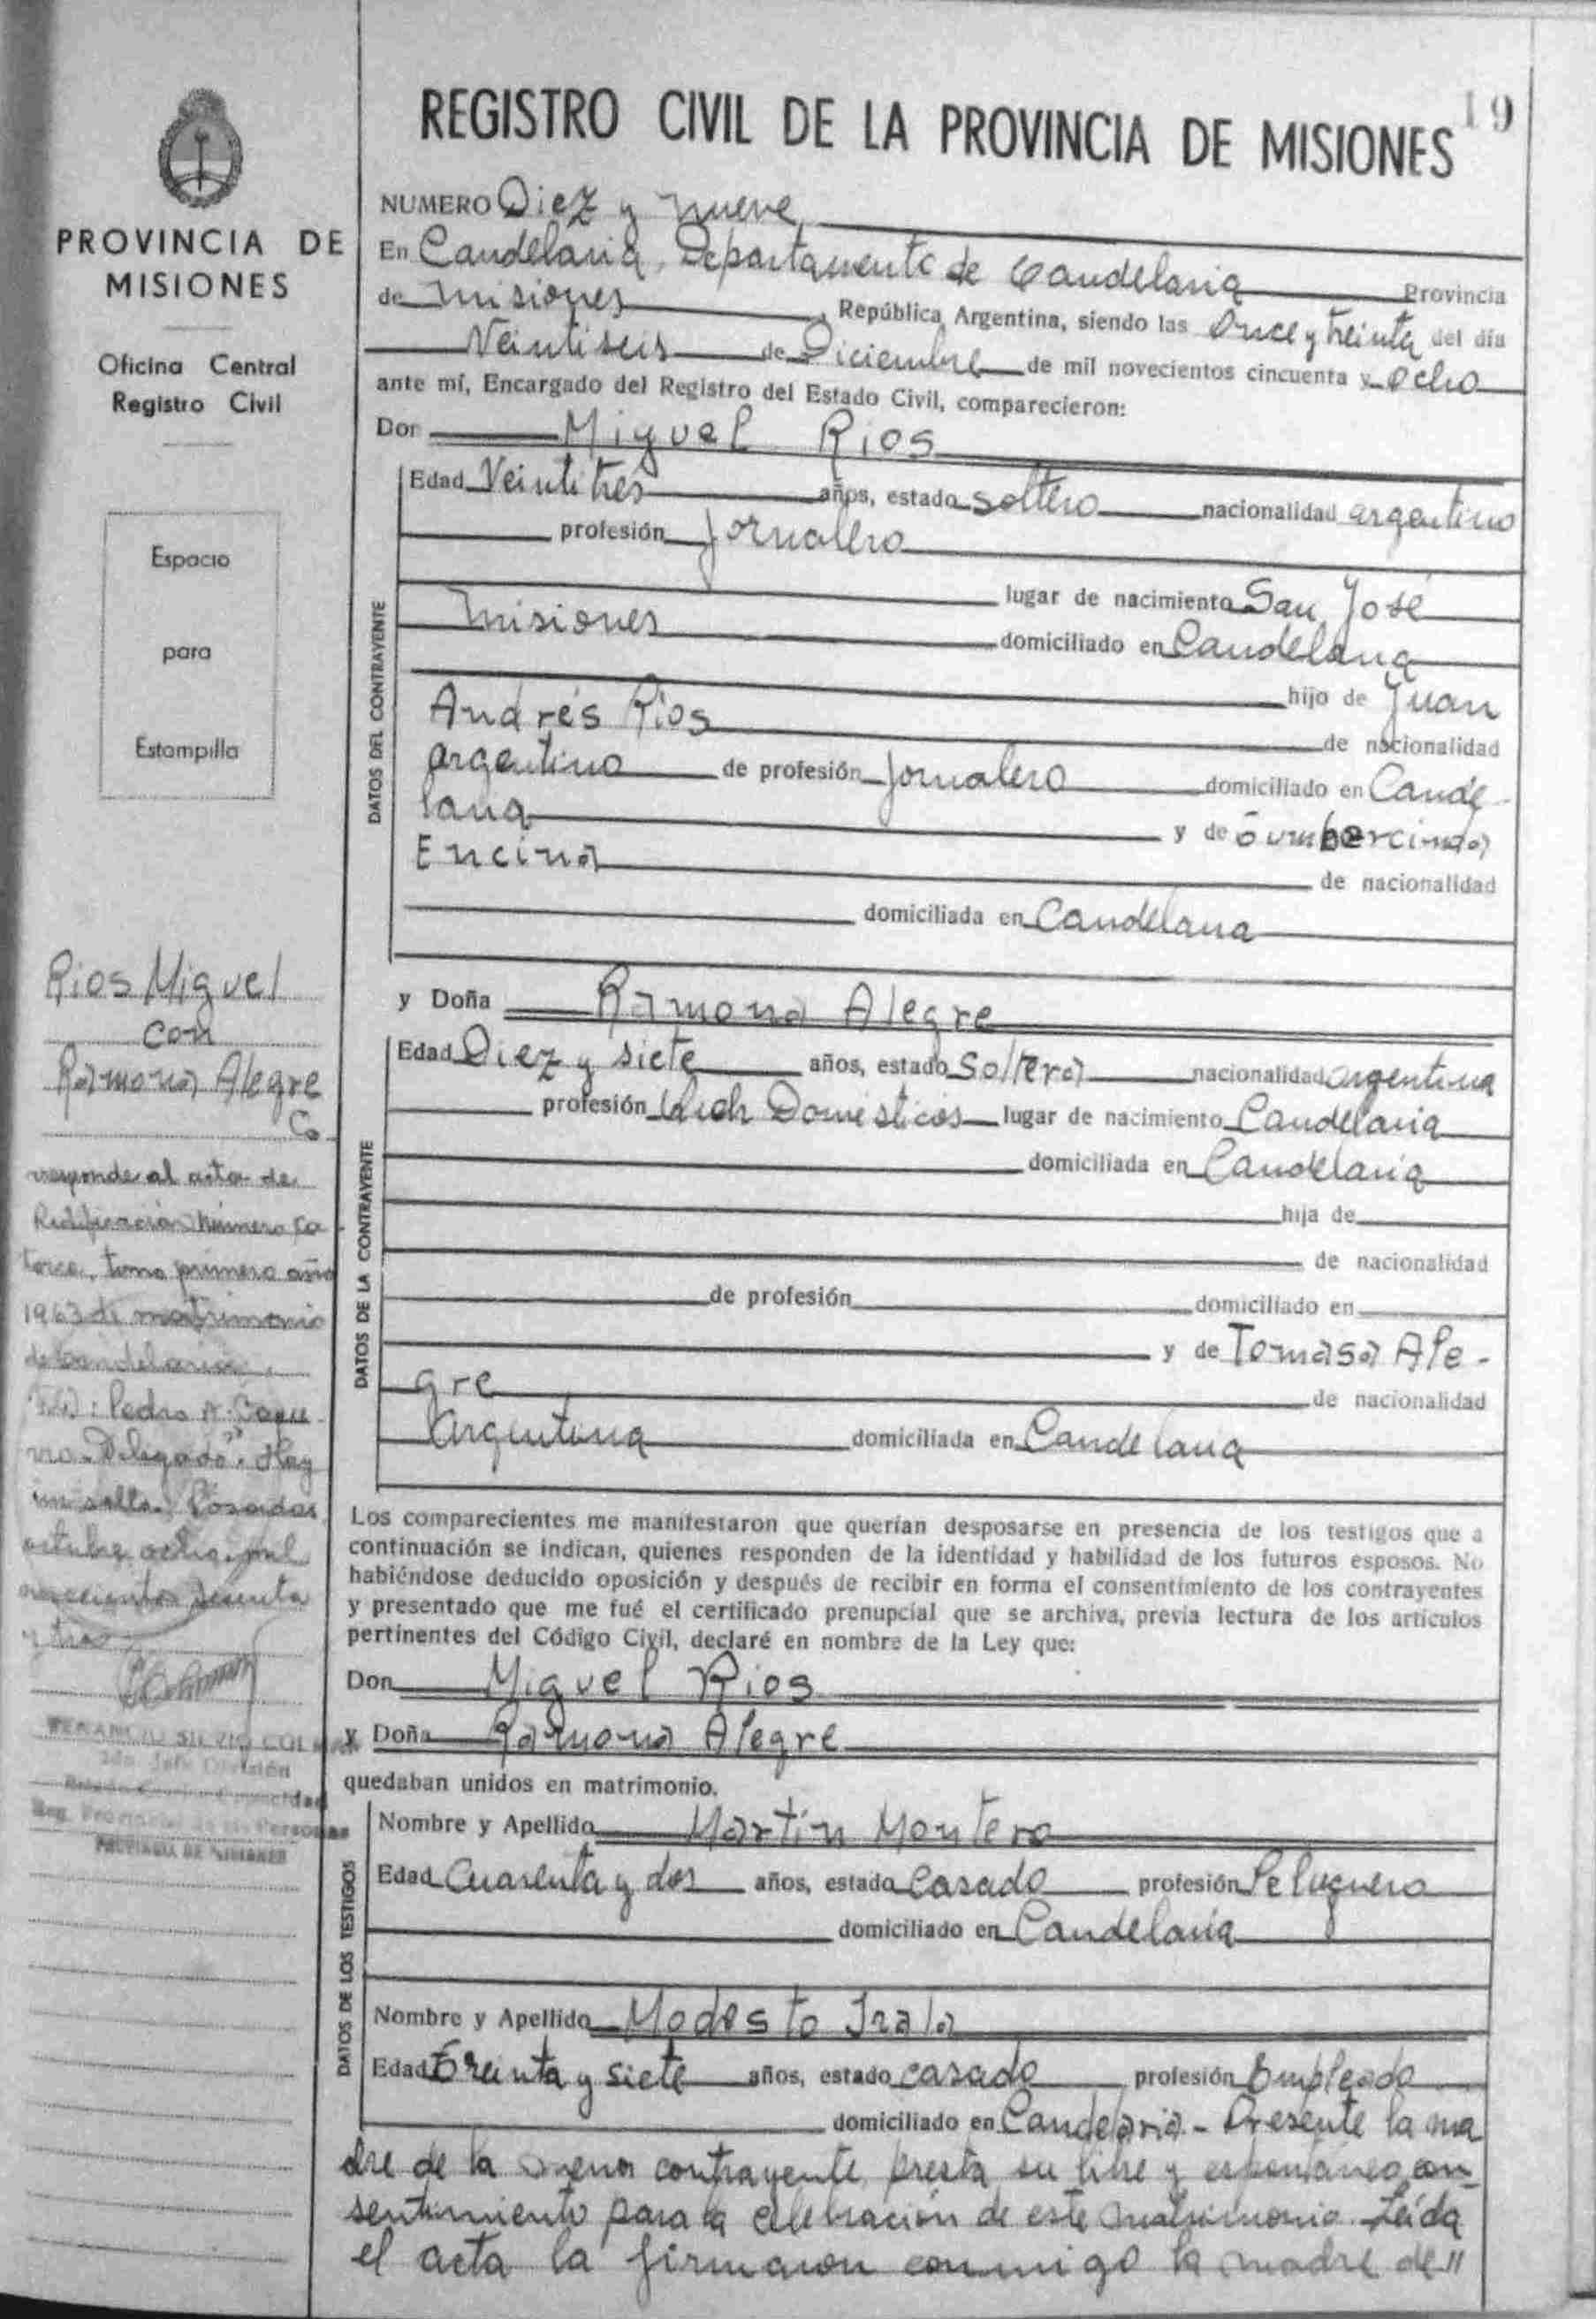 19
REGISTRO CIVIL DE LA PROVINCIA DE MISIONES
PROVINCIA DE
MISIONES
Oficina Central
Registro Civil
Espacio
para
Estampilla
NUMERO Diez y nueve
En Candelaria, Departamento de Candelaria Provincia
de Misiones, República Argentina, siendo las Once y treinta del día
Veintiseis de Diciembre de mil novecientos cincuenta y Ocho
ante mí, Encargado del Registro del Estado Civil, comparecieron:
Don Miguel Rios
DATOS DEL CONTRAYENTE
Edad Veintitres años, estado soltero nacionalidad argentino
profesión Jornalero
lugar de nacimiento San José
Misiones domiciliado en Candelaria
hijo de Juan
Andrés Rios de nacionalidad
argentino de profesión Jornalero domiciliado en Cande-
laria y de Gumbercinda
Encina de nacionalidad
domiciliada en Candelaria
y Doña Ramona Alegre
DATOS DE LA CONTRAYENTE
Edad Diez y siete años, estado Soltera nacionalidad argentina
profesión Queh Domésticos lugar de nacimiento Candelaria
domiciliada en Candelaria
hija de
de nacionalidad
de profesión domiciliado en
y de Tomasa Ale-
gre de nacionalidad
Argentina domiciliada en Candelaria
Los comparecientes me manifestaron que querían desposarse en presencia de los testigos que a
continuación se indican, quienes responden de la identidad y habilidad de los futuros esposos. No
habiéndose deducido oposición y después de recibir en forma el consentimiento de los contrayentes
y presentado que me fué el certificado prenupcial que se archiva, previa lectura de los artículos
pertinentes del Código Civil, declaré en nombre de la Ley que:
Don Miguel Rios
y Doña Ramona Alegre
quedaban unidos en matrimonio.
DATOS DE LOS TESTIGOS
Nombre y Apellido Martín Montero
Edad Cuarenta y dos años, estado Casado profesión Peluquero
domiciliado en Candelaria
Nombre y Apellido Modesto Irala
Edad Treinta y siete años, estado casado profesión Empleado
domiciliado en Candelaria - Presente la ma
dre de la menor contrayente, presta su libre y espontáneo con-
sentimiento para la celebración de este matrimonio. Leída
el acta la firmaron conmigo la madre de "
Rios Miguel
con
Ramona Alegre
Co
rresponde al acta de
Rectificación Número Ca-
torce, tomo primero año
1963 de matrimonio
de Candelaria.
Pedro A.
Delegado". Hay
un sello. Posadas
octubre ocho, mil
novecientos sesenta
y tres
2do. Jefe División
Reg. Provincial de las Personas
PROVINCIA DE MISIONES